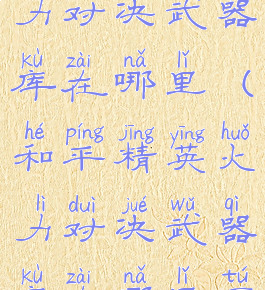 力对决武器
kù zài nǎ lǐ
库在哪里（
hé píng jīng yīng huǒ
和平精英火
lì duì jué wǔ qì
力对决武器
kù zài nǎ lǐ tú